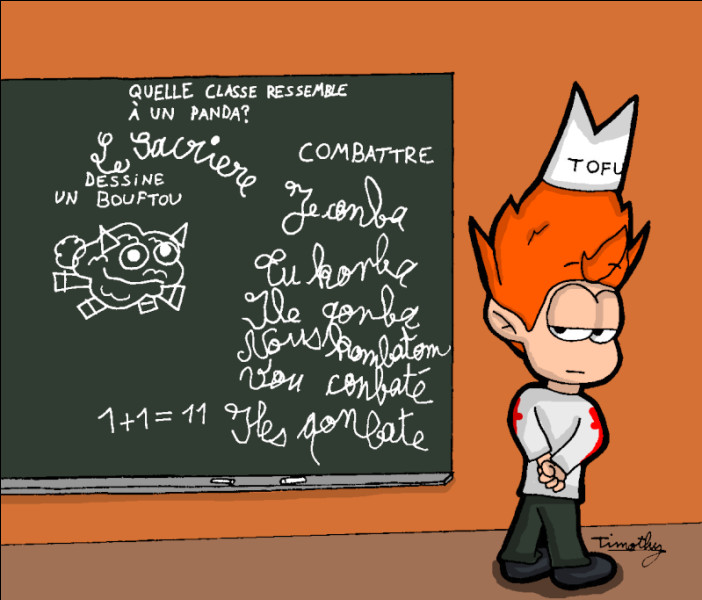 QUELLE CLASSE RESSEMBLE
À UN PANDA?
Le Sacriere
DESSINE
UN BOUFTOU
1+1=11
COMBATTRE
Je conba
Tu konba
Ile qonba
Nous kombatom
Vou conbaté
Iles qonbate
TOFU
Timothy